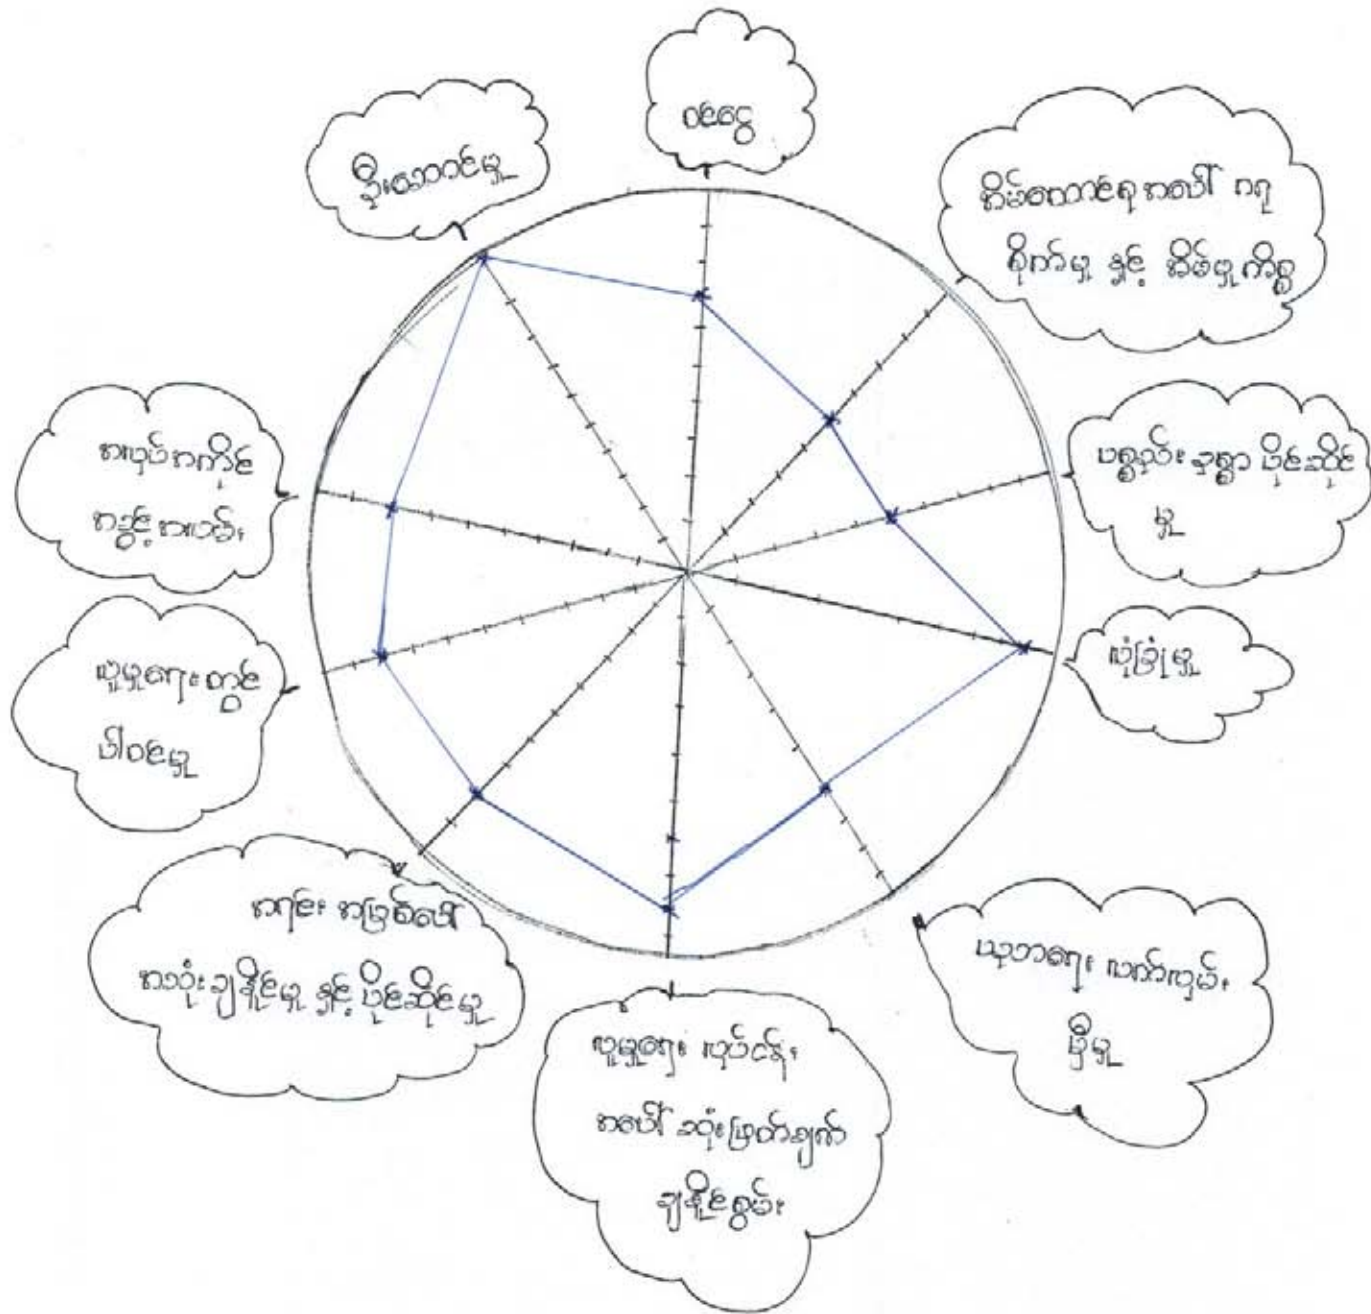 ဝင်ငွေ
အိမ်ထောင်စု အပေါ် ဂရု
စိုက်မှု နှင့် အိမ်မှုကိစ္စ
ပစ္စည်း ဥစ္စာ ပိုင်ဆိုင်
မှု
လုံခြုံမှု
ယုဘရေး လက်လှမ်း
မှီမှု
လူမှုရေး လုပ်ငန်း
အပေါ် ဆုံးဖြတ်ချက်
ချနိုင်စွမ်း
အရင်း အမြစ်ပေါ်
အသုံးချနိုင်မှု နှင့် ပိုင်ဆိုင်မှု
လူမှုရေး တွင်
ပါဝင်မှု
အလုပ်အကိုင်
အခွင့်အလမ်း
ဦးဆောင်မှု